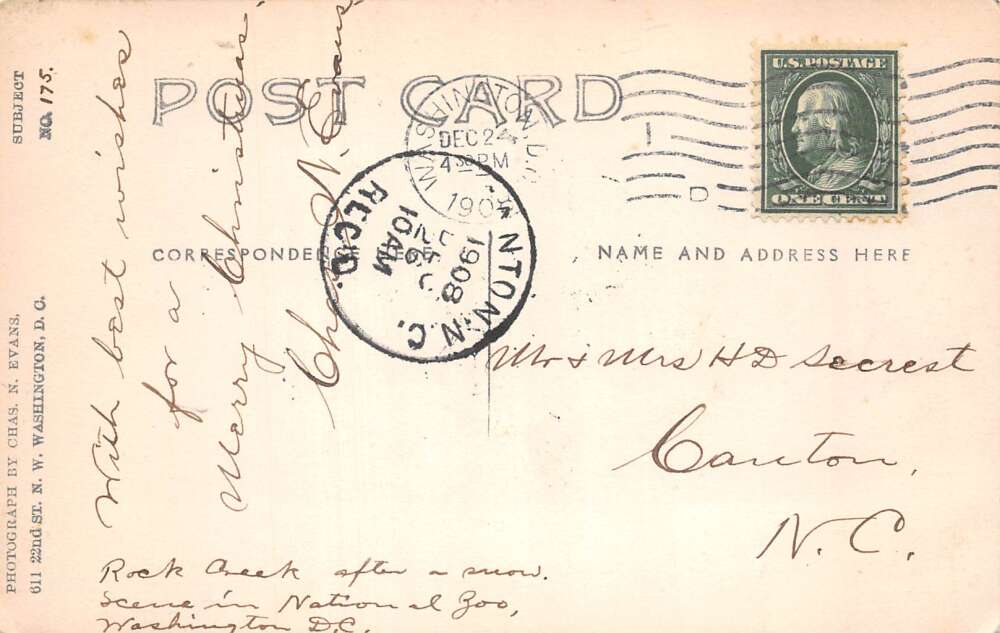 SUBJECT
NO. 175.
PHOTOGRAPH BY CHAS. N. EVANS.
611 22nd ST. N. W. WASHINGTON, D. C.
POST CARD
WASHINGTON, D.C.
DEC 24
4 30 PM
190
U.S. POSTAGE
ONE CENT
D
CORRESPONDENCE HERE
NAME AND ADDRESS HERE
NTON. N.C.
1908
10 AM
REC'D.
With best wishes
for a
Merry Christmas
Chas. N. Evans
Mr & Mrs H D Secrest
Canton,
N. C.
Rock Creek after a snow.
Scene in National Zoo,
Washington D.C.